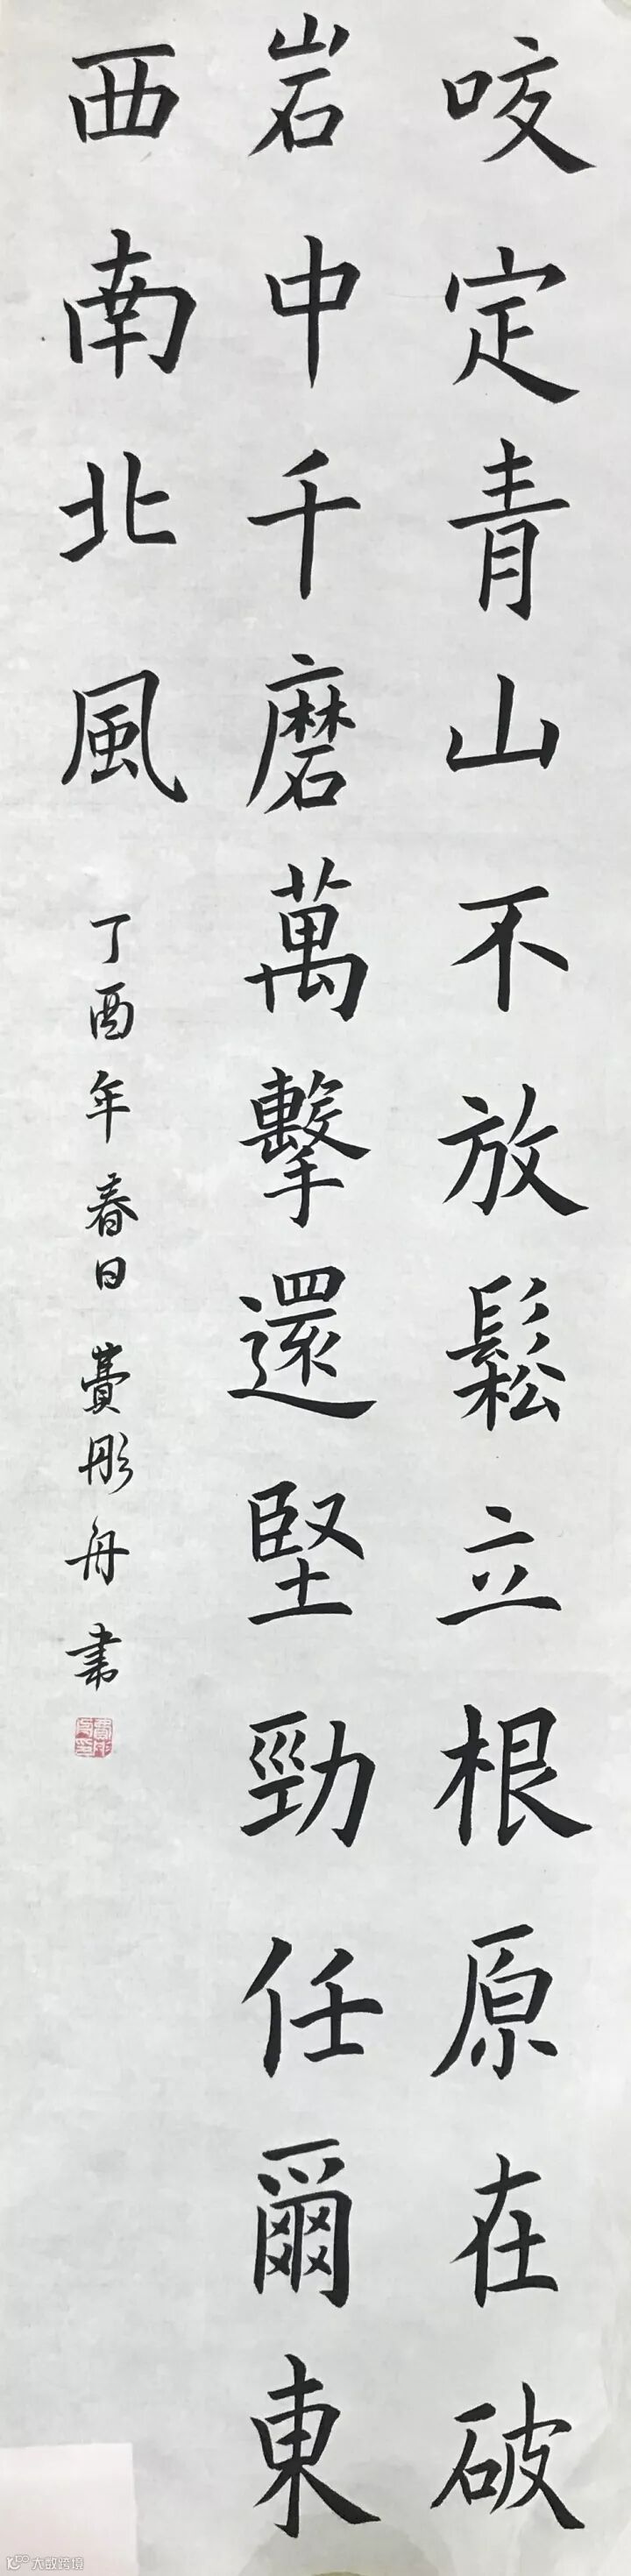 咬定青山不放鬆立根原在破
岩中千磨萬擊還堅勁任爾東
西南北風
丁酉年春日費彤舟書
大数跨境